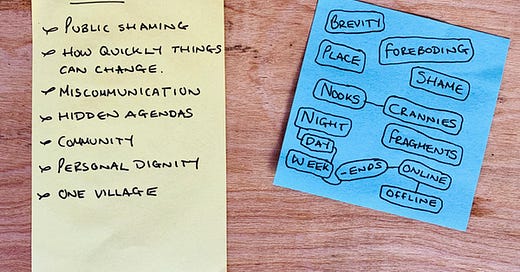 PUBLIC SHAMING
HOW QUICKLY THINGS
CAN CHANGE.
MISCOMMUNICATION
HIDDEN AGENDAS
COMMUNITY
PERSONAL DIGNITY
ONE VILLAGE
BREVITY
PLACE
FOREBODING
SHAME
NOOKS
CRANNIES
NIGHT
FRAGMENTS
DAY
WEEK
-ENDS
ONLINE
OFFLINE